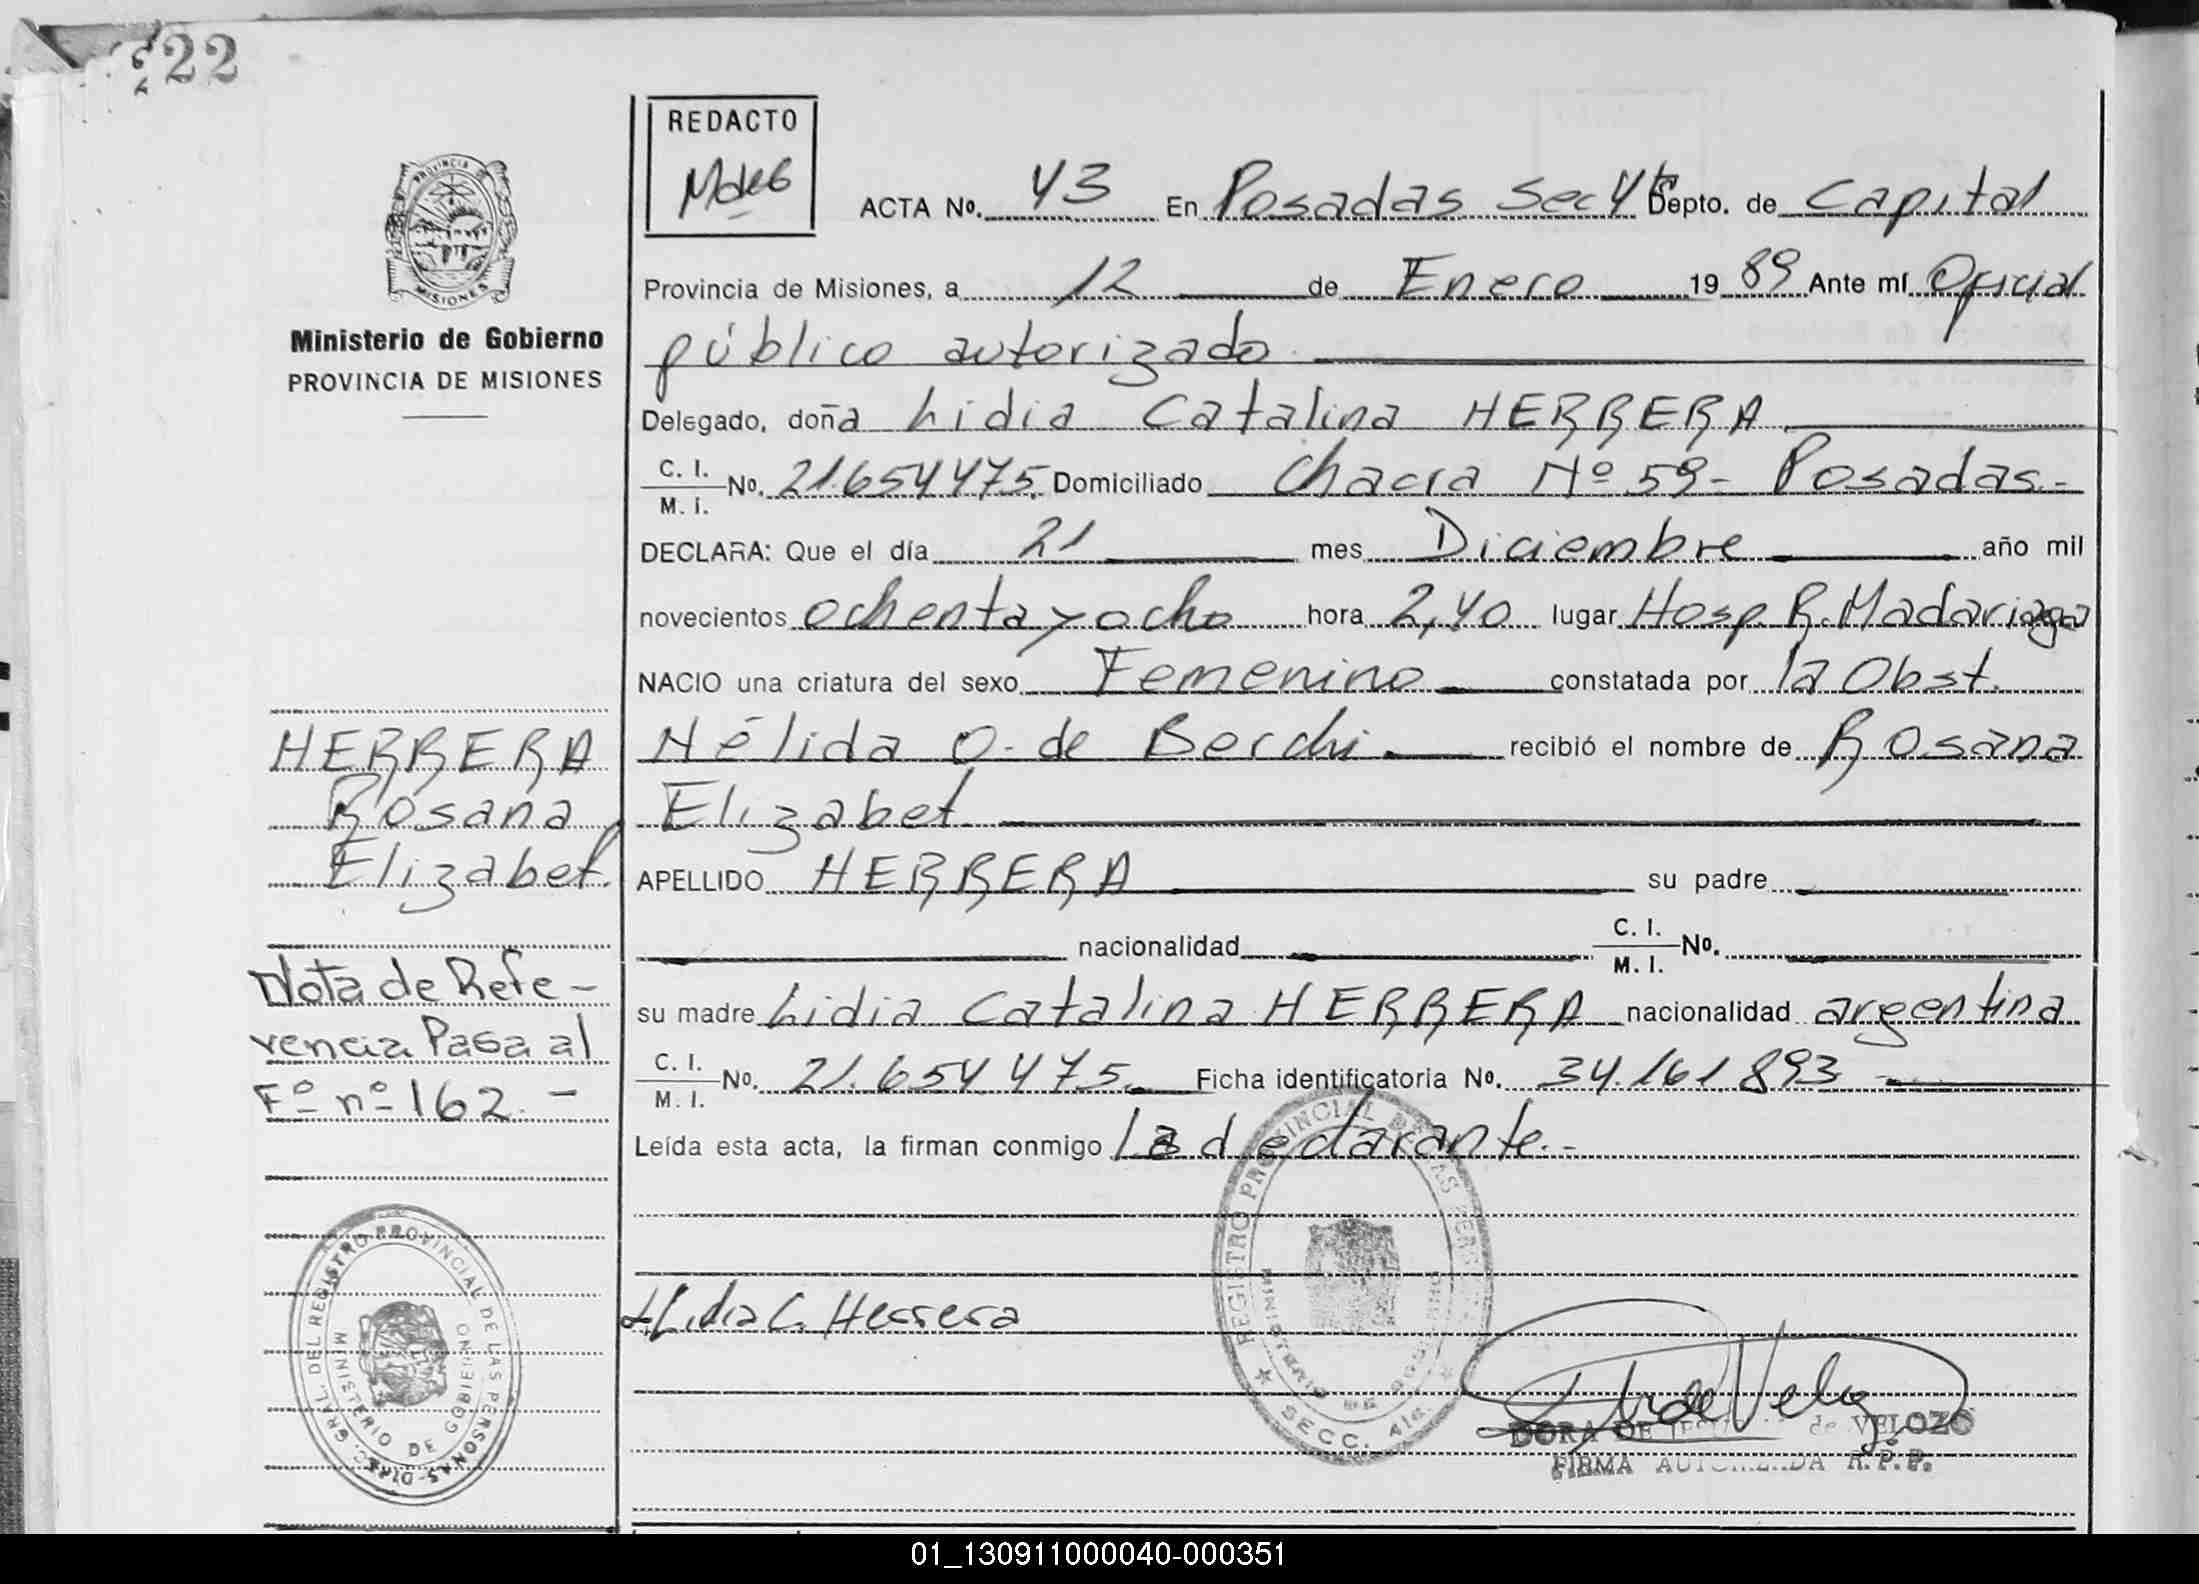 22
REDACTO
ACTA No. 43 En Posadas Sec 4ta Depto. de Capital
PROVINCIA
MISIONES
Provincia de Misiones, a 12 de Enero 19 89 Ante mí Oficial
público autorizado
Ministerio de Gobierno
PROVINCIA DE MISIONES
Delegado, doña Lidia Catalina HERRERA
C. I.
M. I.
No. 21.654475. Domiciliado Chacra Nº 59 - Posadas.-
DECLARA: Que el día 21 mes Diciembre año mil
novecientos ochenta y ocho hora 2,40 lugar Hosp. R. Madariaga
NACIO una criatura del sexo Femenino constatada por la Obst.
Nélida O. de Berchi recibió el nombre de Rosana
Elizabet
APELLIDO HERRERA su padre
nacionalidad C. I.
M. I. No.
su madre Lidia Catalina HERRERA nacionalidad argentina
C. I.
M. I.
No. 21.654.475. Ficha identificatoria No. 34.161.893 -
Leída esta acta, la firman conmigo la declarante.-
HERRERA
Rosana
Elizabet.
Nota de Refe-
rencia Pasa al
Fº nº 162. -
DIREC. GRAL. DEL REGISTRO PROVINCIAL DE LAS PERSONAS
MINISTERIO DE GOBIERNO
REGISTRO PROVINCIAL DE LAS PERSONAS
MINISTERIO DE GOBIERNO
SECC. 4ta.
Lidia C. Herrera
DORA DE de VELOZO
FIRMA AUTORIZADA R.P.P.
01_130911000040-000351